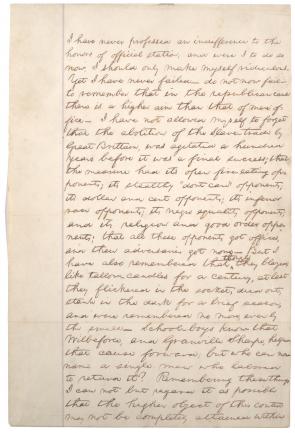 I have never professed an indifference to the
honors of official station; and were I to do so
now, I should only make myself ridiculous.
Yet I have never failed— do not now fail—
to remember that in the republican cause
there is a higher aim than that of mere of-
fice— I have not allowed myself to forget
that the abolition of the Slave-trade by
Great Brittain, was agitated a hundred
years before it was a final success; that
the measure had it's open fire-eating op-
ponents; it's stealthy "dont care" opponents;
it's dollar and cent opponents; it's inferior
race opponents; it's negro equality opponents;
and it's religion and good order oppo-
nents; that all these opponents got offices,
and their adversaries got none— But I
have also remembered that though they blazed
like tallow-candles for a century, at last
they flickered in the socket, died out,
stank in the dark for a brief season,
and were remembered no more, even by
the smell— School-boys know that
Wilbeforce, and Granville Sharpe, helped
that cause forward; but who can now
name a single man who labored
to retard it? Remembering these things
I can not but regard it as possible
that the higher object of this contest
may not be completely attained within